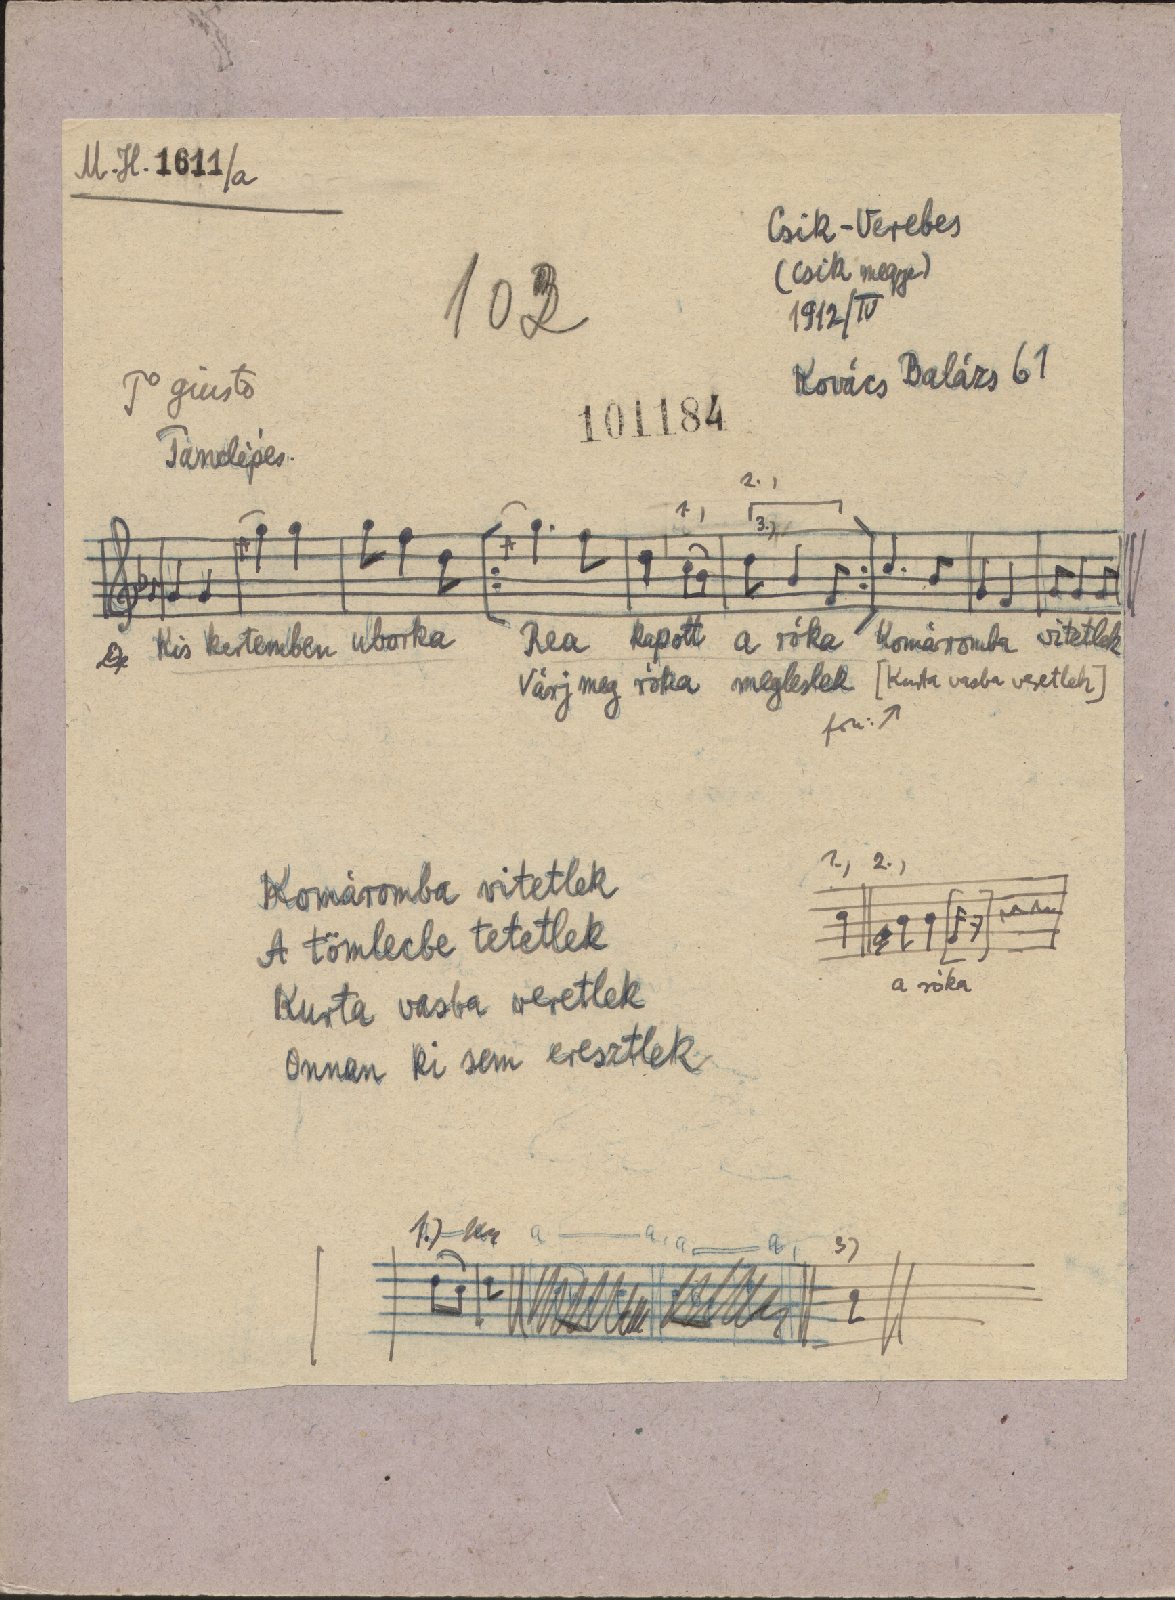 M.H. 1611/a
Csik-Verebes
(Csik megye)
1912/IV
Kovács Balázs 61
102
101184
Tº giusto
2.,
1,
3.,
Kis kertemben uborka Rea kapott a róka Komáromba vitetlek
Várj meg róka megleslek [Kurta vasba veretlek]
fon: ↗
Komáromba vitetlek
A tömlecbe tetetlek
Kurta vasba veretlek
Onnan ki sem eresztlek
1., 2.,
a róka
1.) a a, a a, 3)